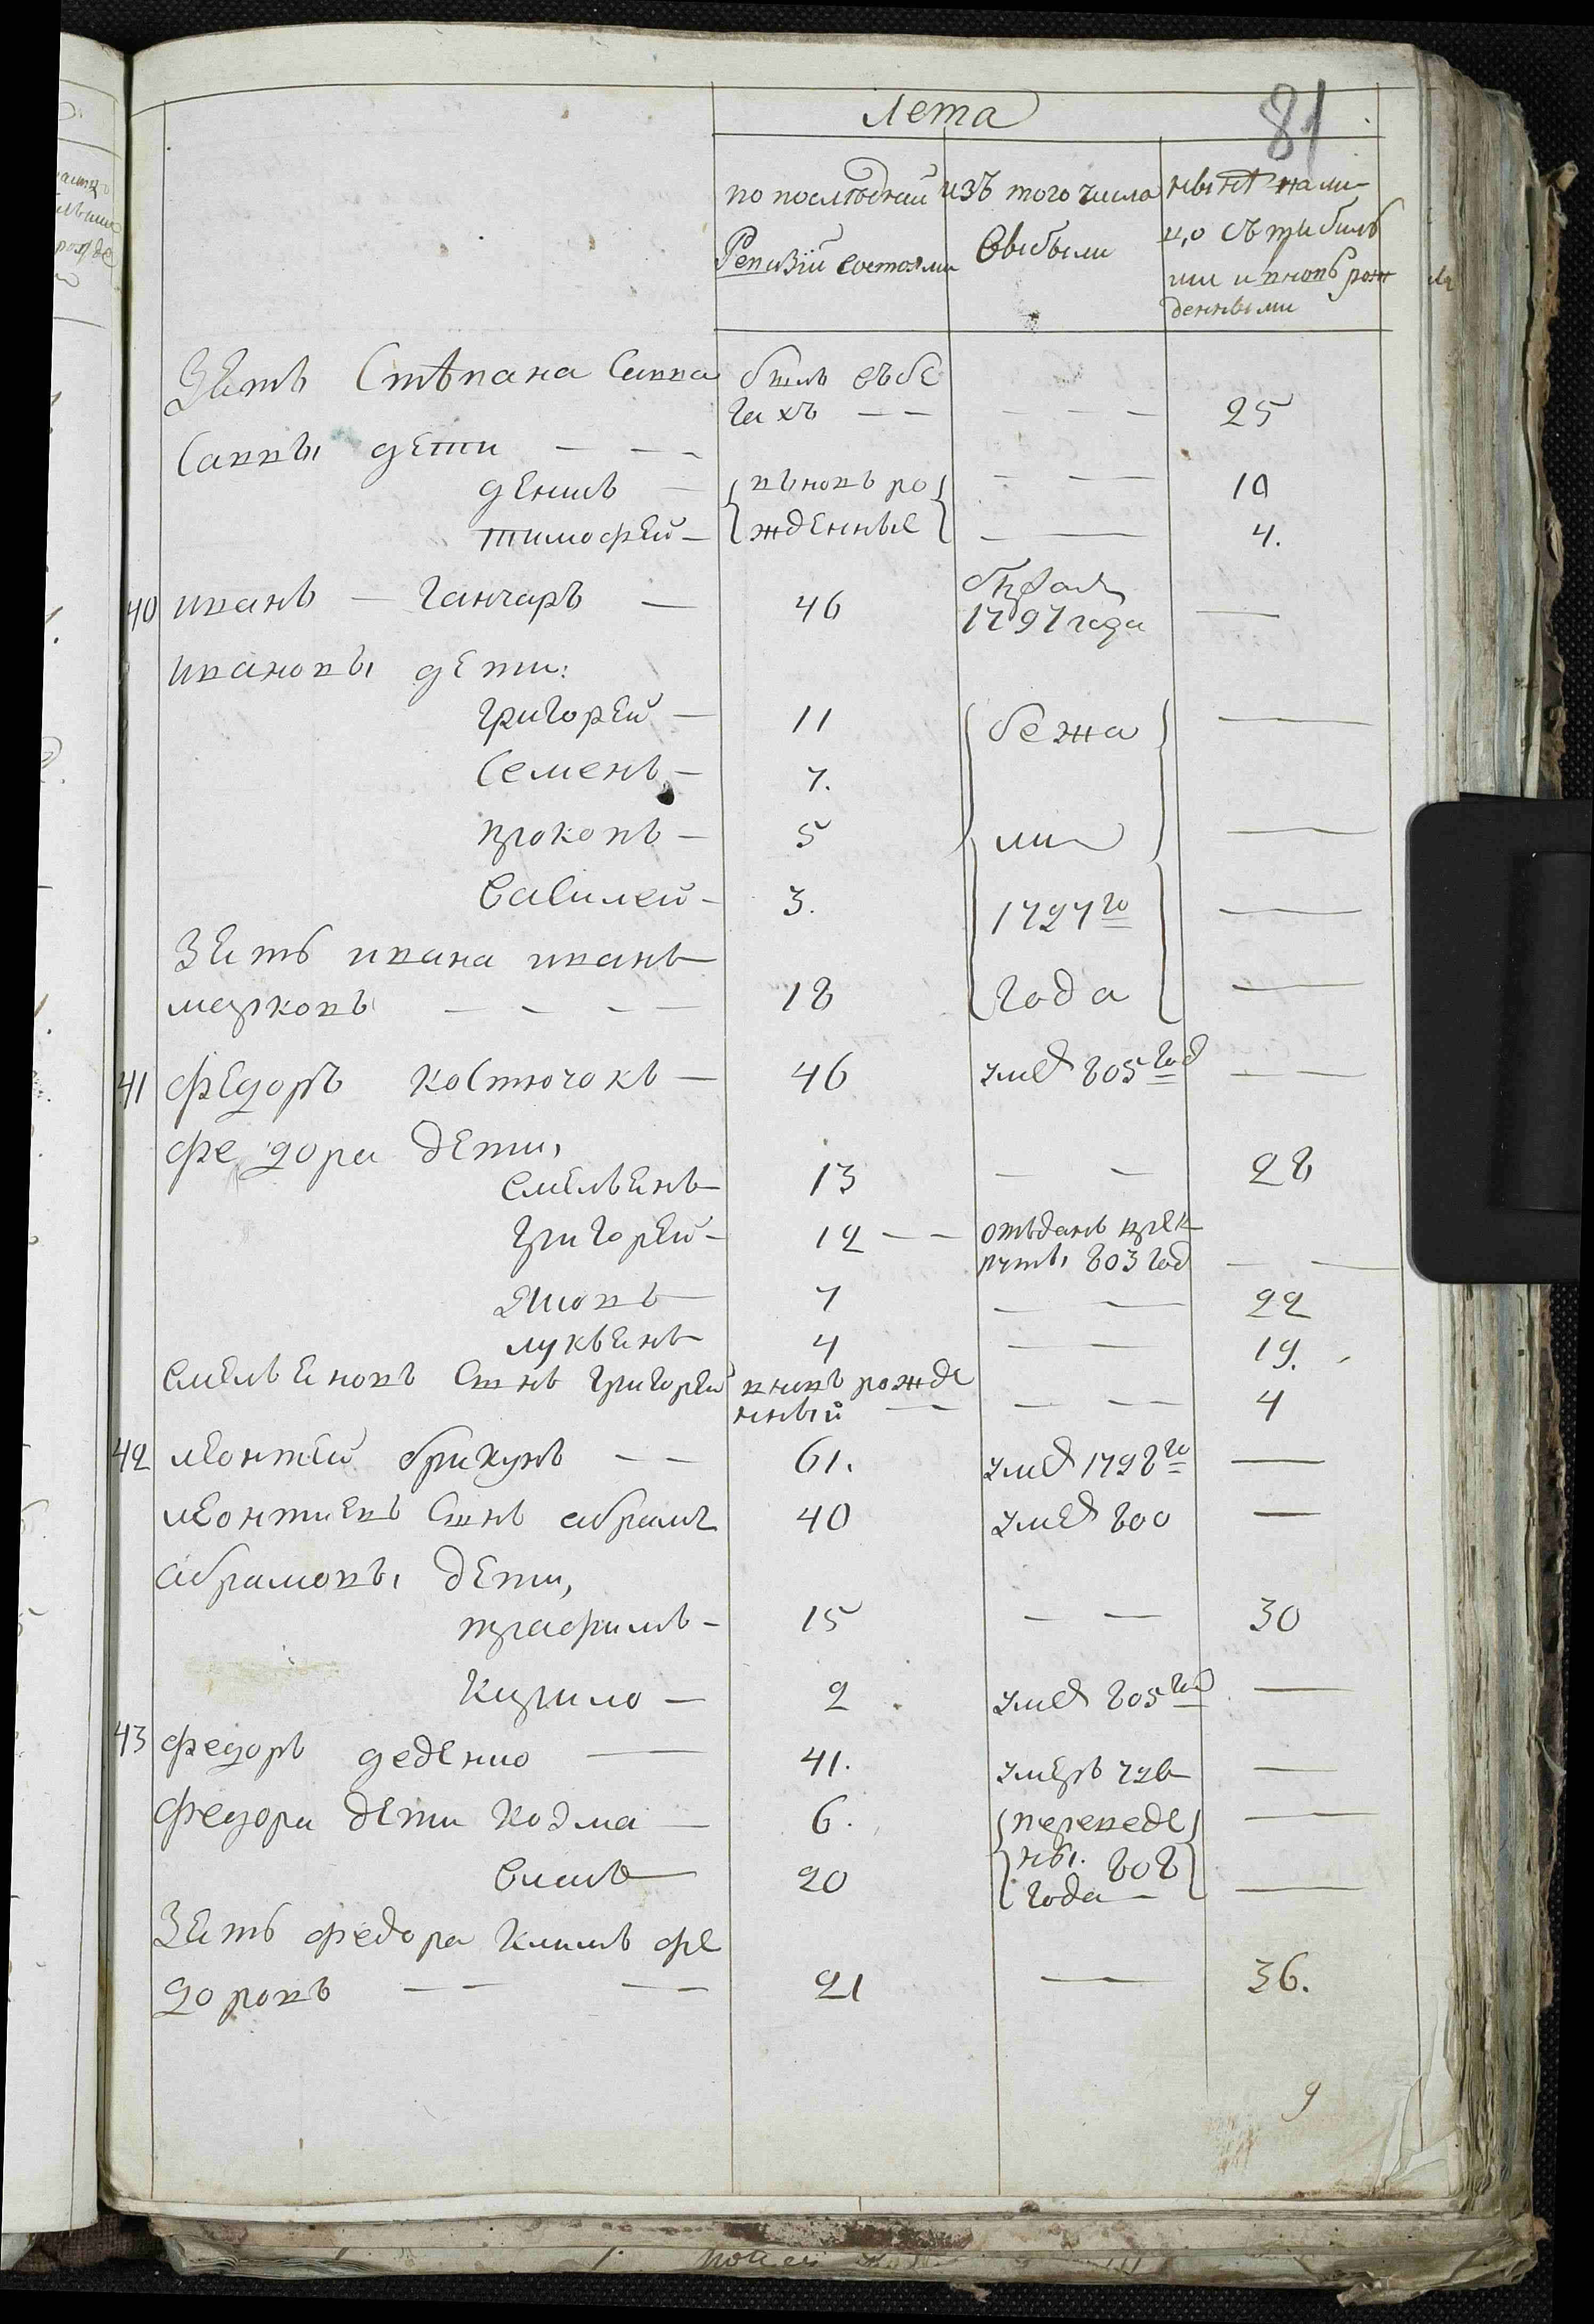 81
Лета
по последней Ревизии состояли
изъ того числа выбыли
ныне налицо съ прибылыми и вновь рожденными
Зять Степана Савва былъ въ бе
гахъ — — — — — 25
Саввы дети — — —
Денисъ — вновь ро — — 10
Тимофей — жденные — — 4.
40 Иванъ — Ганчаръ — 46 1797 года —
Ивановы дети:
Григорей — 11 бежа —
Семенъ — 7.
Прокопъ — 5 ли —
Василей — 3. 1797го —
Зять Ивана Иванъ
Марковъ — — — — 18 года —
41 Федоръ Костючокъ — 46 умер 805 год — —
Федора дети,
Емельянъ — 13 — — 28
Григорей — 12 — — отъданъ врек
руты 803 год — —
7 — — 22
Лукьянъ 4 — — 19.
Емельяновъ Сынъ Григорей вновь рожде
нный — — — 4
42 Леонтей Брикунъ — — 61. умер 1798го —
Леонтиевъ Сынъ Абрамъ 40 умер 800 —
Абрамовы дети,
Трофимъ — 15 — — 30
Кирило — 2 умер 805 год —
43 Федоръ Деденко — 41. умеръ —
Федора дети Козма — 6. переведе —
20 ны. 808
года — —
Зять Федора Климъ Фе
доровъ — — 21 — 36.
9